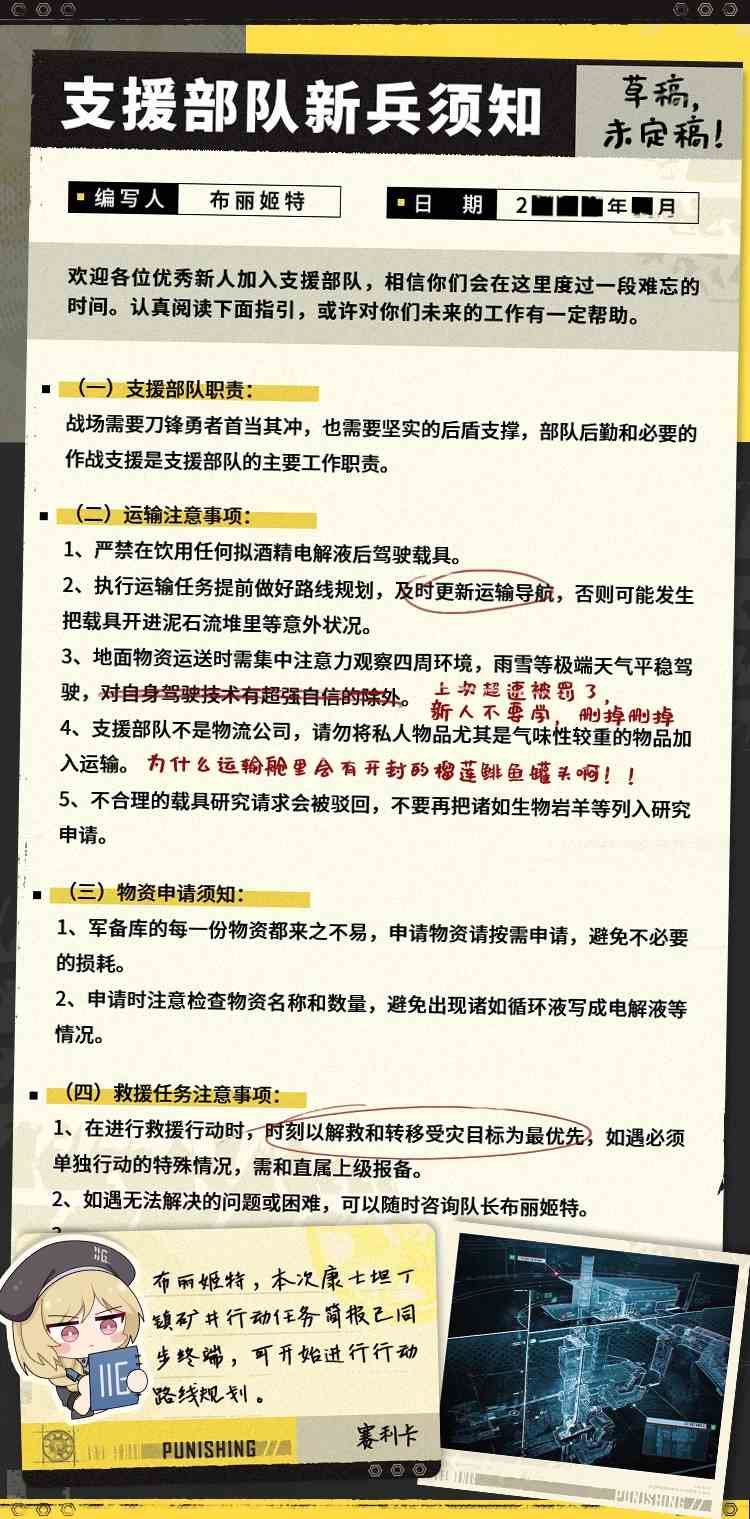 支援部队新兵须知
草稿，
未定稿！
编写人 布丽姬特
日 期 2 年 月
欢迎各位优秀新人加入支援部队，相信你们会在这里度过一段难忘的
时间。认真阅读下面指引，或许对你们未来的工作有一定帮助。
（一）支援部队职责：
战场需要刀锋勇者首当其冲，也需要坚实的后盾支撑，部队后勤和必要的
作战支援是支援部队的主要工作职责。
（二）运输注意事项：
1、严禁在饮用任何拟酒精电解液后驾驶载具。
2、执行运输任务提前做好路线规划，及时更新运输导航，否则可能发生
把载具开进泥石流堆里等意外状况。
3、地面物资运送时需集中注意力观察四周环境，雨雪等极端天气平稳驾
驶，对自身驾驶技术有超强自信的除外。
上次超速被罚了，
新人不要学，删掉删掉
4、支援部队不是物流公司，请勿将私人物品尤其是气味性较重的物品加
入运输。 为什么运输舱里会有开封的榴莲鲱鱼罐头啊！！
5、不合理的载具研究请求会被驳回，不要再把诸如生物岩羊等列入研究
申请。
（三）物资申请须知：
1、军备库的每一份物资都来之不易，申请物资请按需申请，避免不必要
的损耗。
2、申请时注意检查物资名称和数量，避免出现诸如循环液写成电解液等
情况。
（四）救援任务注意事项：
1、在进行救援行动时，时刻以解救和转移受灾目标为最优先，如遇必须
单独行动的特殊情况，需和直属上级报备。
2、如遇无法解决的问题或困难，可以随时咨询队长布丽姬特。
布丽姬特，本次康士坦丁
镇矿井行动任务简报已同
步终端，可开始进行行动
路线规划。
赛利卡
PUNISHING
PUNISHING